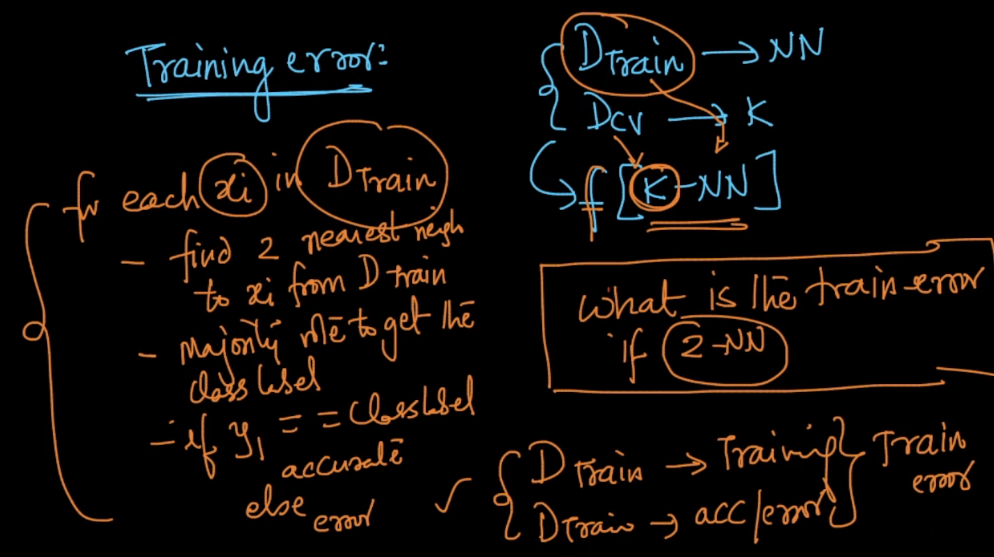 Training error:
for each xi in DTrain
- find 2 nearest neigh
to xi from D train
- majority vote to get the
class label
- if y1 == class label
accurate
else error
DTrain → NN
Dcv → K
f[K-NN]
What is the train error
if 2-NN
DTrain → Training
DTrain → acc/error
Train
error